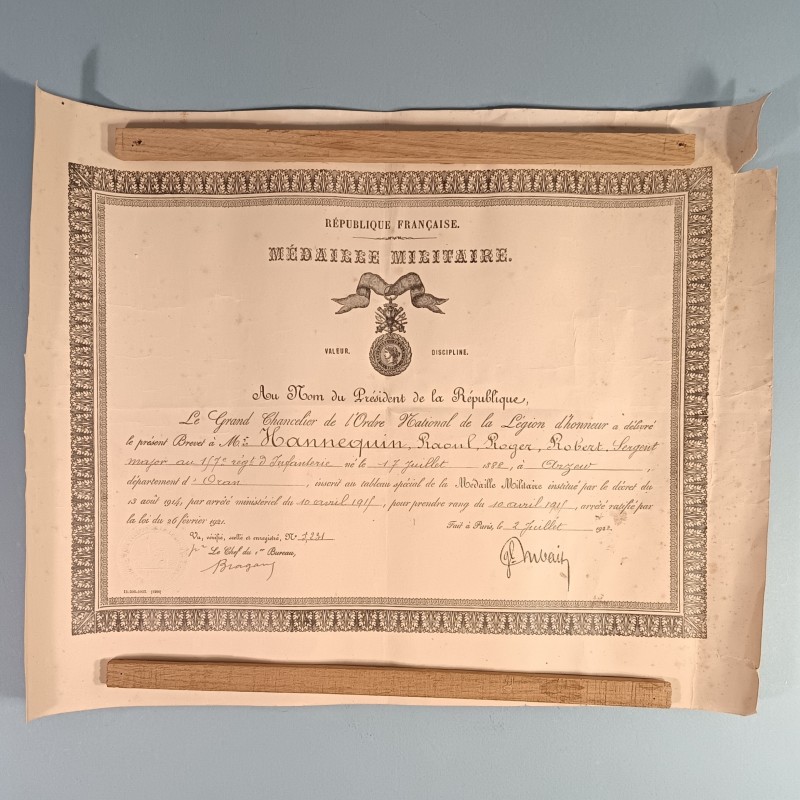 RÉPUBLIQUE FRANÇAISE.
MÉDAILLE MILITAIRE.
VALEUR. DISCIPLINE.
Au Nom du Président de la République,
Le Grand Chancelier de l'Ordre National de la Légion d'honneur a délivré
le présent Brevet à Mr. Hannequin, Raoul, Roger, Robert, Sergent
major au régt d'Infanterie né le 17 Juillet 1882, à Arzew,
département d'Oran, inscrit au tableau spécial de la Médaille Militaire institué par le décret du
13 août 1914, par arrêté ministériel du 10 avril 1915, pour prendre rang du 10 avril 1915, arrêté ratifié par
la loi du 26 février 1921.
Fait à Paris, le 2 Juillet 1922.
Vu, vérifié, scellé et enregistré, No 7.231
Le Chef du 1er Bureau,